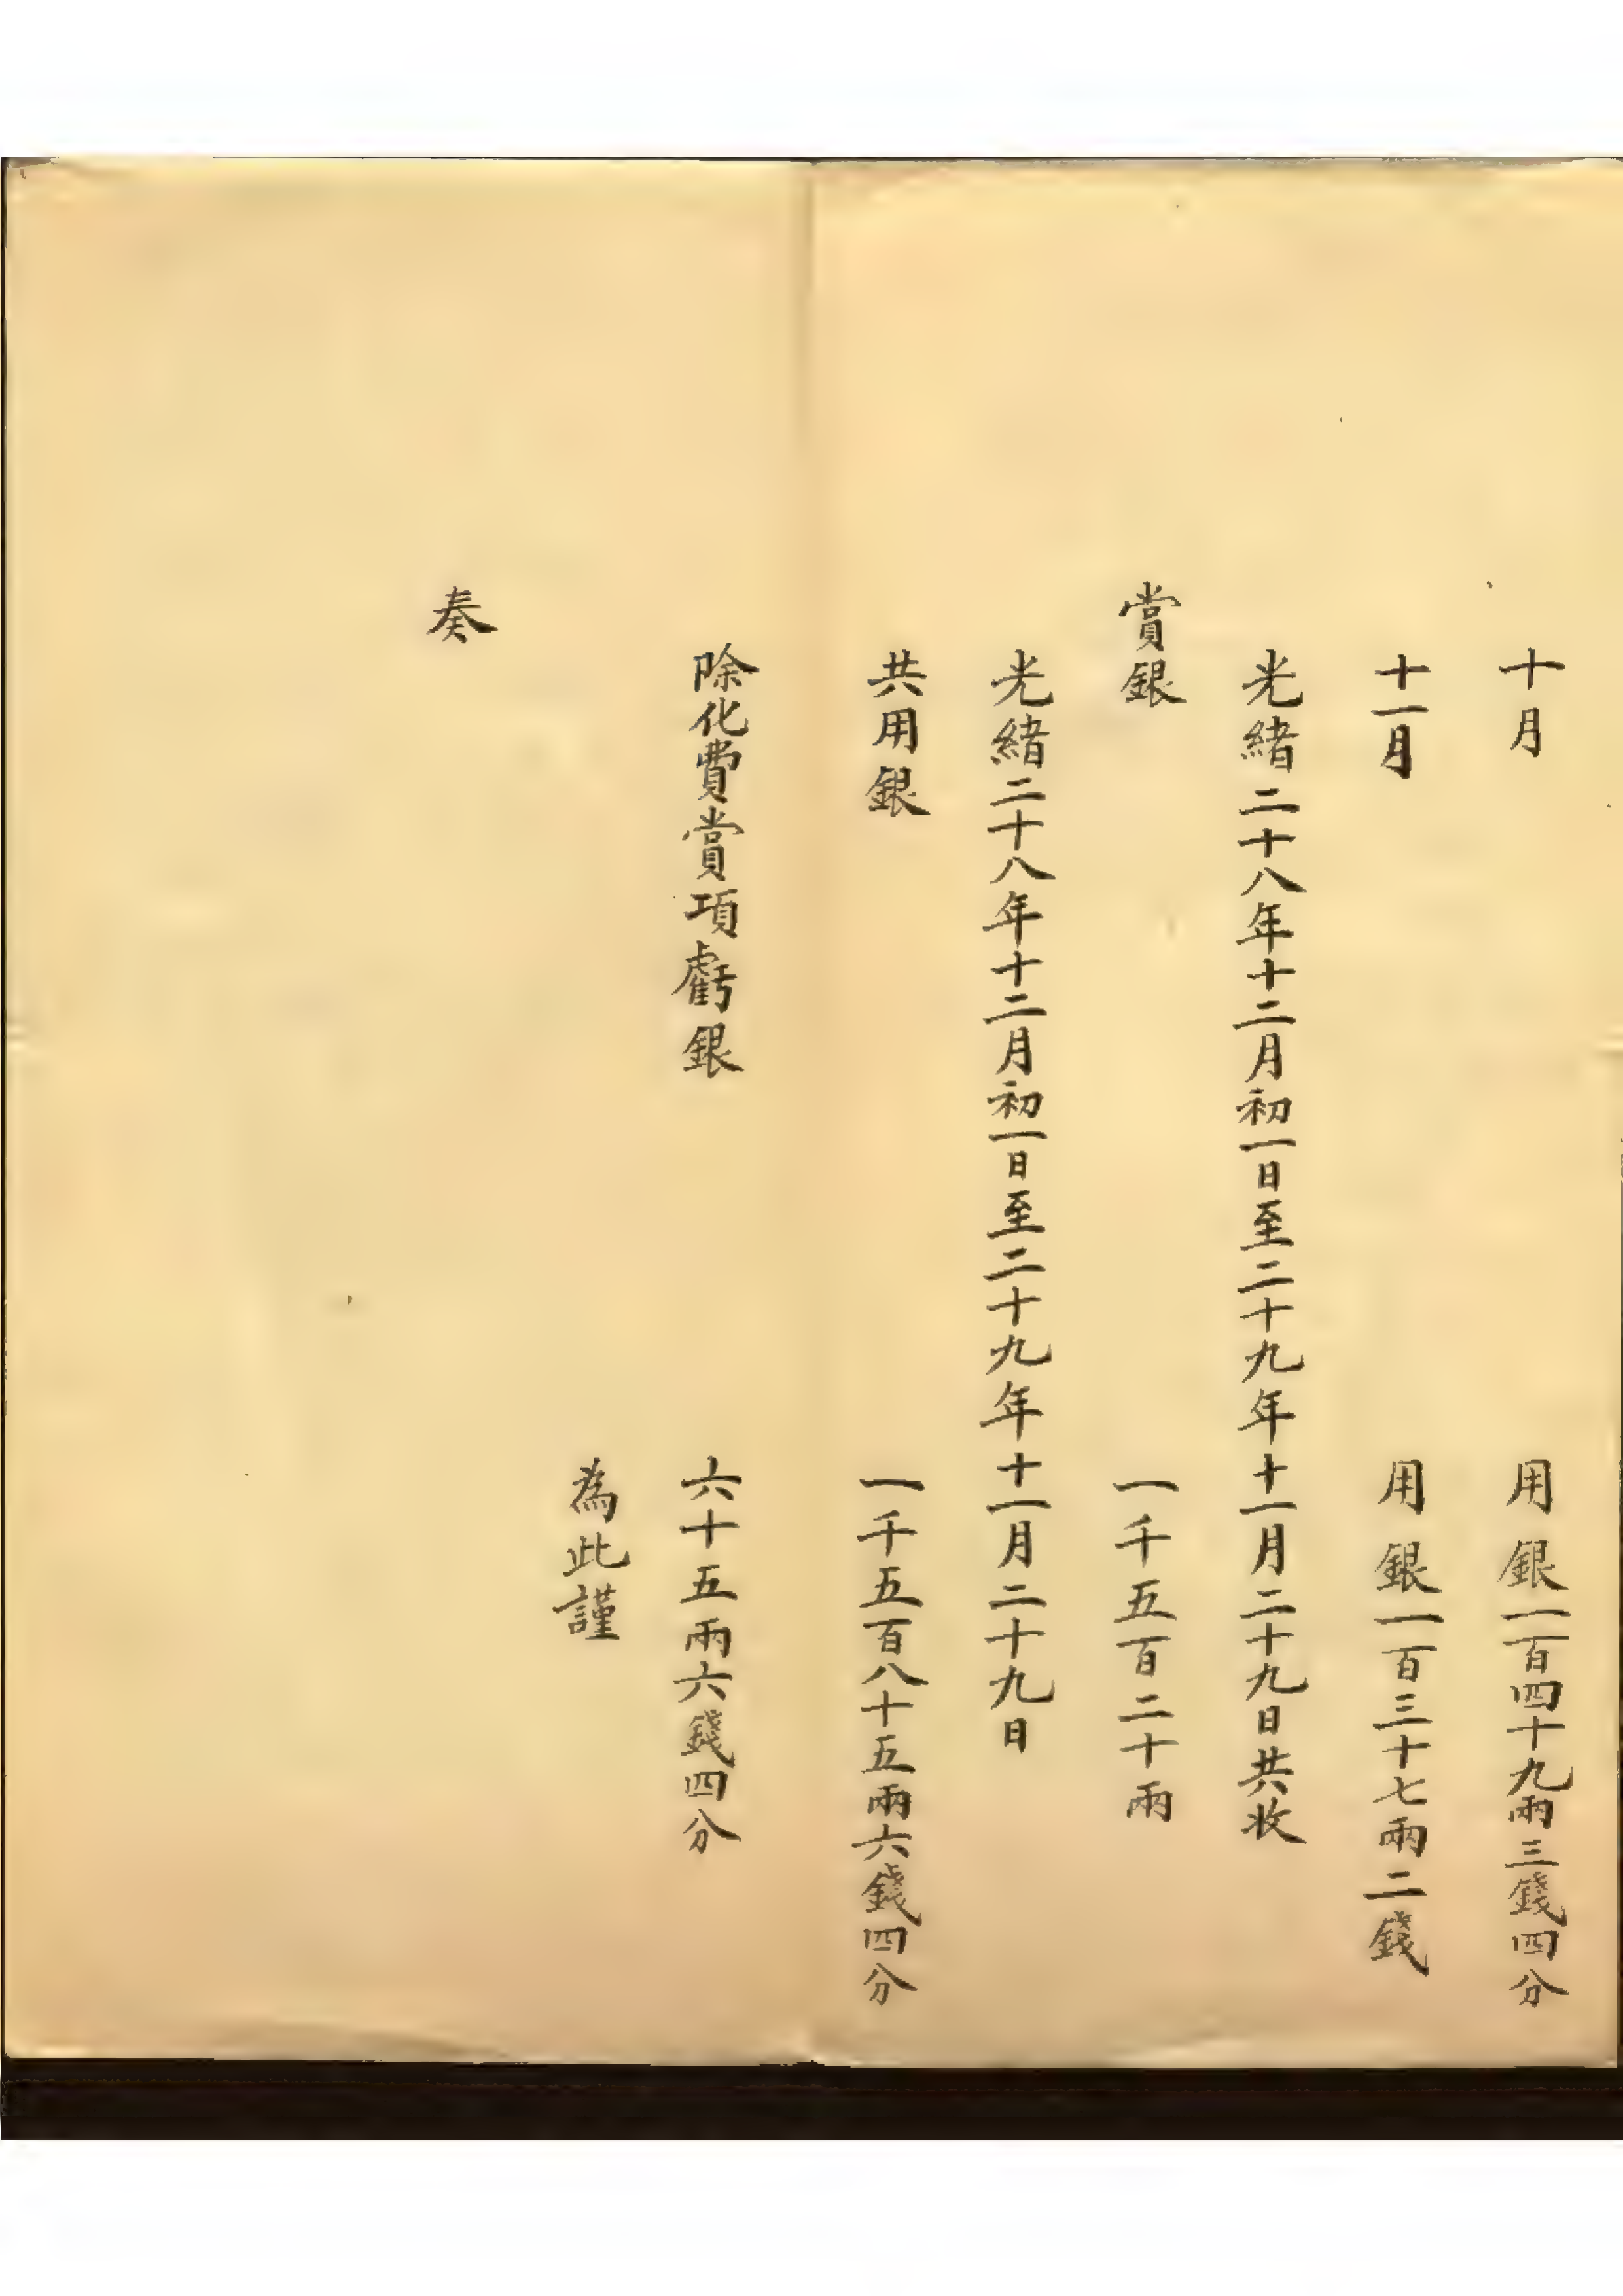 十月 用銀一百四十九兩三錢四分
十一月 用銀一百三十七兩二錢
光緒二十八年十二月初一日至二十九年十一月二十九日共收
賞銀 一千五百二十兩
光緒二十八年十二月初一日至二十九年十一月二十九日
共用銀 一千五百八十五兩六錢四分
除化費賞項虧銀 六十五兩六錢四分
為此謹
奏